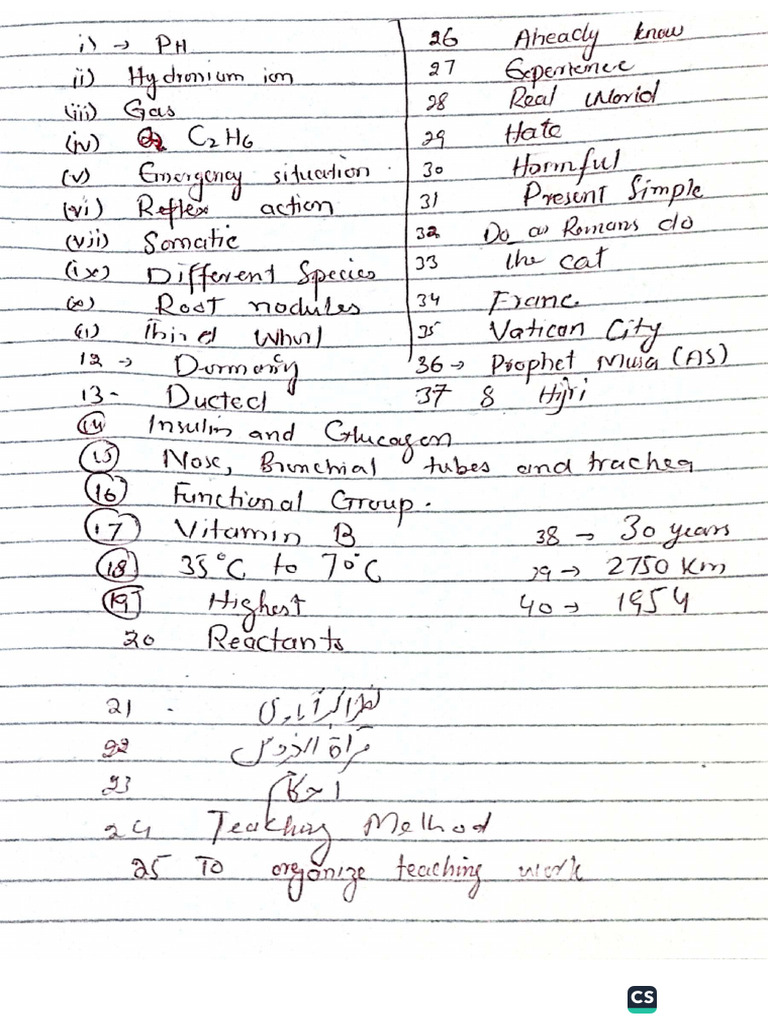 i) → PH
ii) Hydronium ion
(iii) Gas
(iv) C₂H₆
(v) Emergency situation
(vi) Reflex action
(vii) Somatic
(ix) Different Species
Root nodules
Third Whorl
12 → Dormancy
13- Ducted
14 Insulin and Glucagon
15 Nose, Bronchial tubes and trachea
16 Functional Group.
17 Vitamin B
18 35°C to 70°C
19 Highest
20 Reactants
21 - نظیر اکبر آبادی
22 مراۃ العروس
23
24 Teaching Method
25 To organize teaching work
26 Already know
27 Experience
28 Real World
29 Hate
30 Harmful
31 Present Simple
32 Do as Romans do
33 the cat
34 Franc
35 Vatican City
36 → Prophet Musa (AS)
37 8 Hijri
38 → 30 years
39 → 2750 Km
40 → 1954
CS